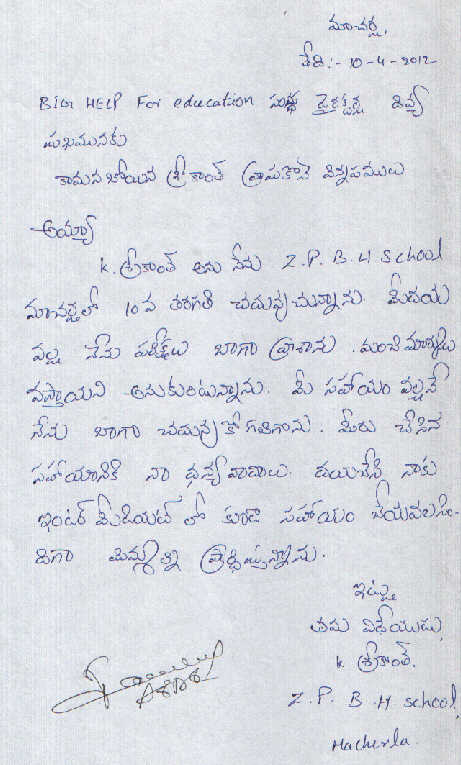 మాచర్ల,
తేది:- 10-4-2012
BIG HELP For education సంస్థ డైరెక్టర్ల దివ్య
ముఖమునకు
కామన బోయిన శ్రీకాంత్ వ్రాసుకొనే విన్నపములు
అయ్యా
K. శ్రీకాంత్ అను నేను Z. P. B. H School
మాచర్లలో 10వ తరగతి చదువుచున్నాను. మీదయ
వల్ల నేను పరీక్షలు బాగా వ్రాశాను. మంచి మార్కులు
వస్తాయని అనుకుంటున్నాను. మీ సహాయం వల్లనే
నేను బాగా చదువుకో గలిగాను. మీరు చేసిన
సహాయానికి నా ధన్యవాదాలు. దయచేసి నాకు
ఇంటర్ మీడియట్ లో కూడా సహాయం చేయవలసిం-
దిగా మిమ్మల్ని ప్రార్థిస్తున్నాను.
ఇట్లు
తమ విధేయుడు,
K. శ్రీకాంత్.
Z. P. B. H school,
Macherla.